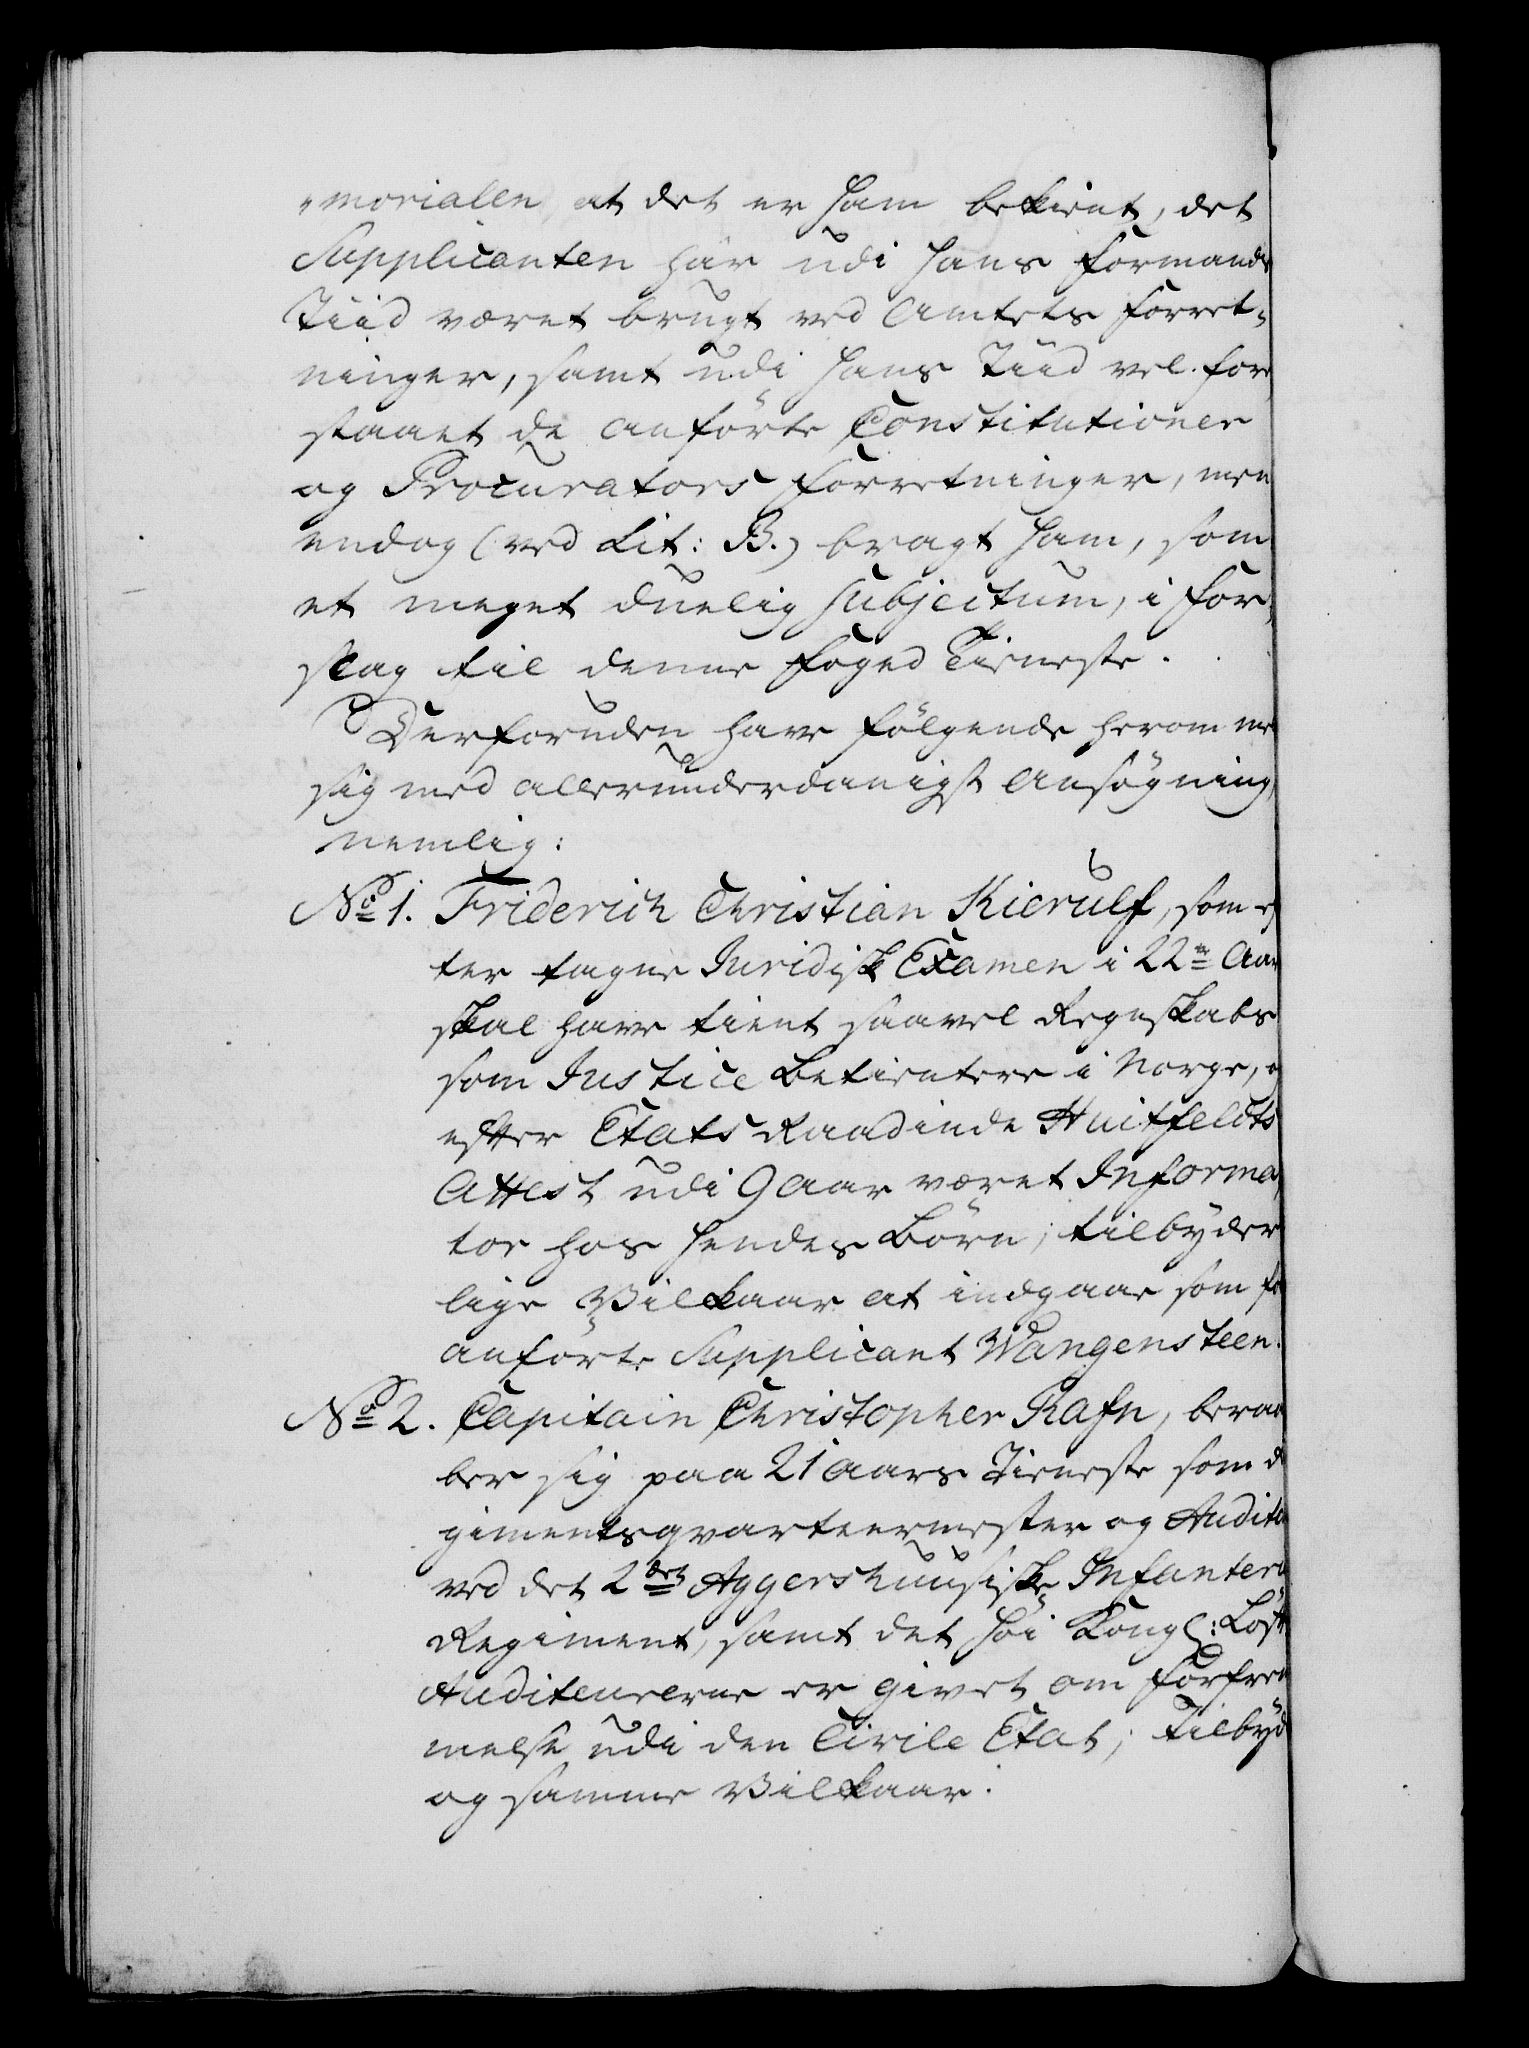 „morialen at det er ham bekient, det
Supplicanten har udi hans Formands
Tiid været brugt ved Amtets Forret„
ninger, samt udi hans Tiid vel fore
staaet de anførte Constitutioner
og Procurators Forretninger, men
endog (ved Lit: B.) bragt ham, som
et meget duelig Subjectum, i For„
slag til denne Foged Tieneste.
Derforuden have følgende herom me
sig med allerunderdanigst Ansøgning,
nemlig:
No 1. Friderich Christian Kierulf, som ef
ter tagne Juridisk Examen i 22de Aar
skal have tient saavel Regnskabs
som Justice Betientere i Norge, o
efter Etats Raadinde Huitfeldts
Attest udi 9 Aar været Informa„
tor hos hendes Børn; tilbyder
lige Vilkaar at indgaae som for
anførte Supplicant Wangensteen.
No 2. Capitain Christopher Rafn, beraa
ber sig paa 21 Aars Tieneste som
gimentsqvarteermester og Auditeu
ved det 2det Aggershuusiske Infanterie
Regiment, samt det høi Kongl: Løfte
Auditeurerne er givet om Forfrem
melse udi den Civile Etat; tilbyd
og samme Vilkaar.